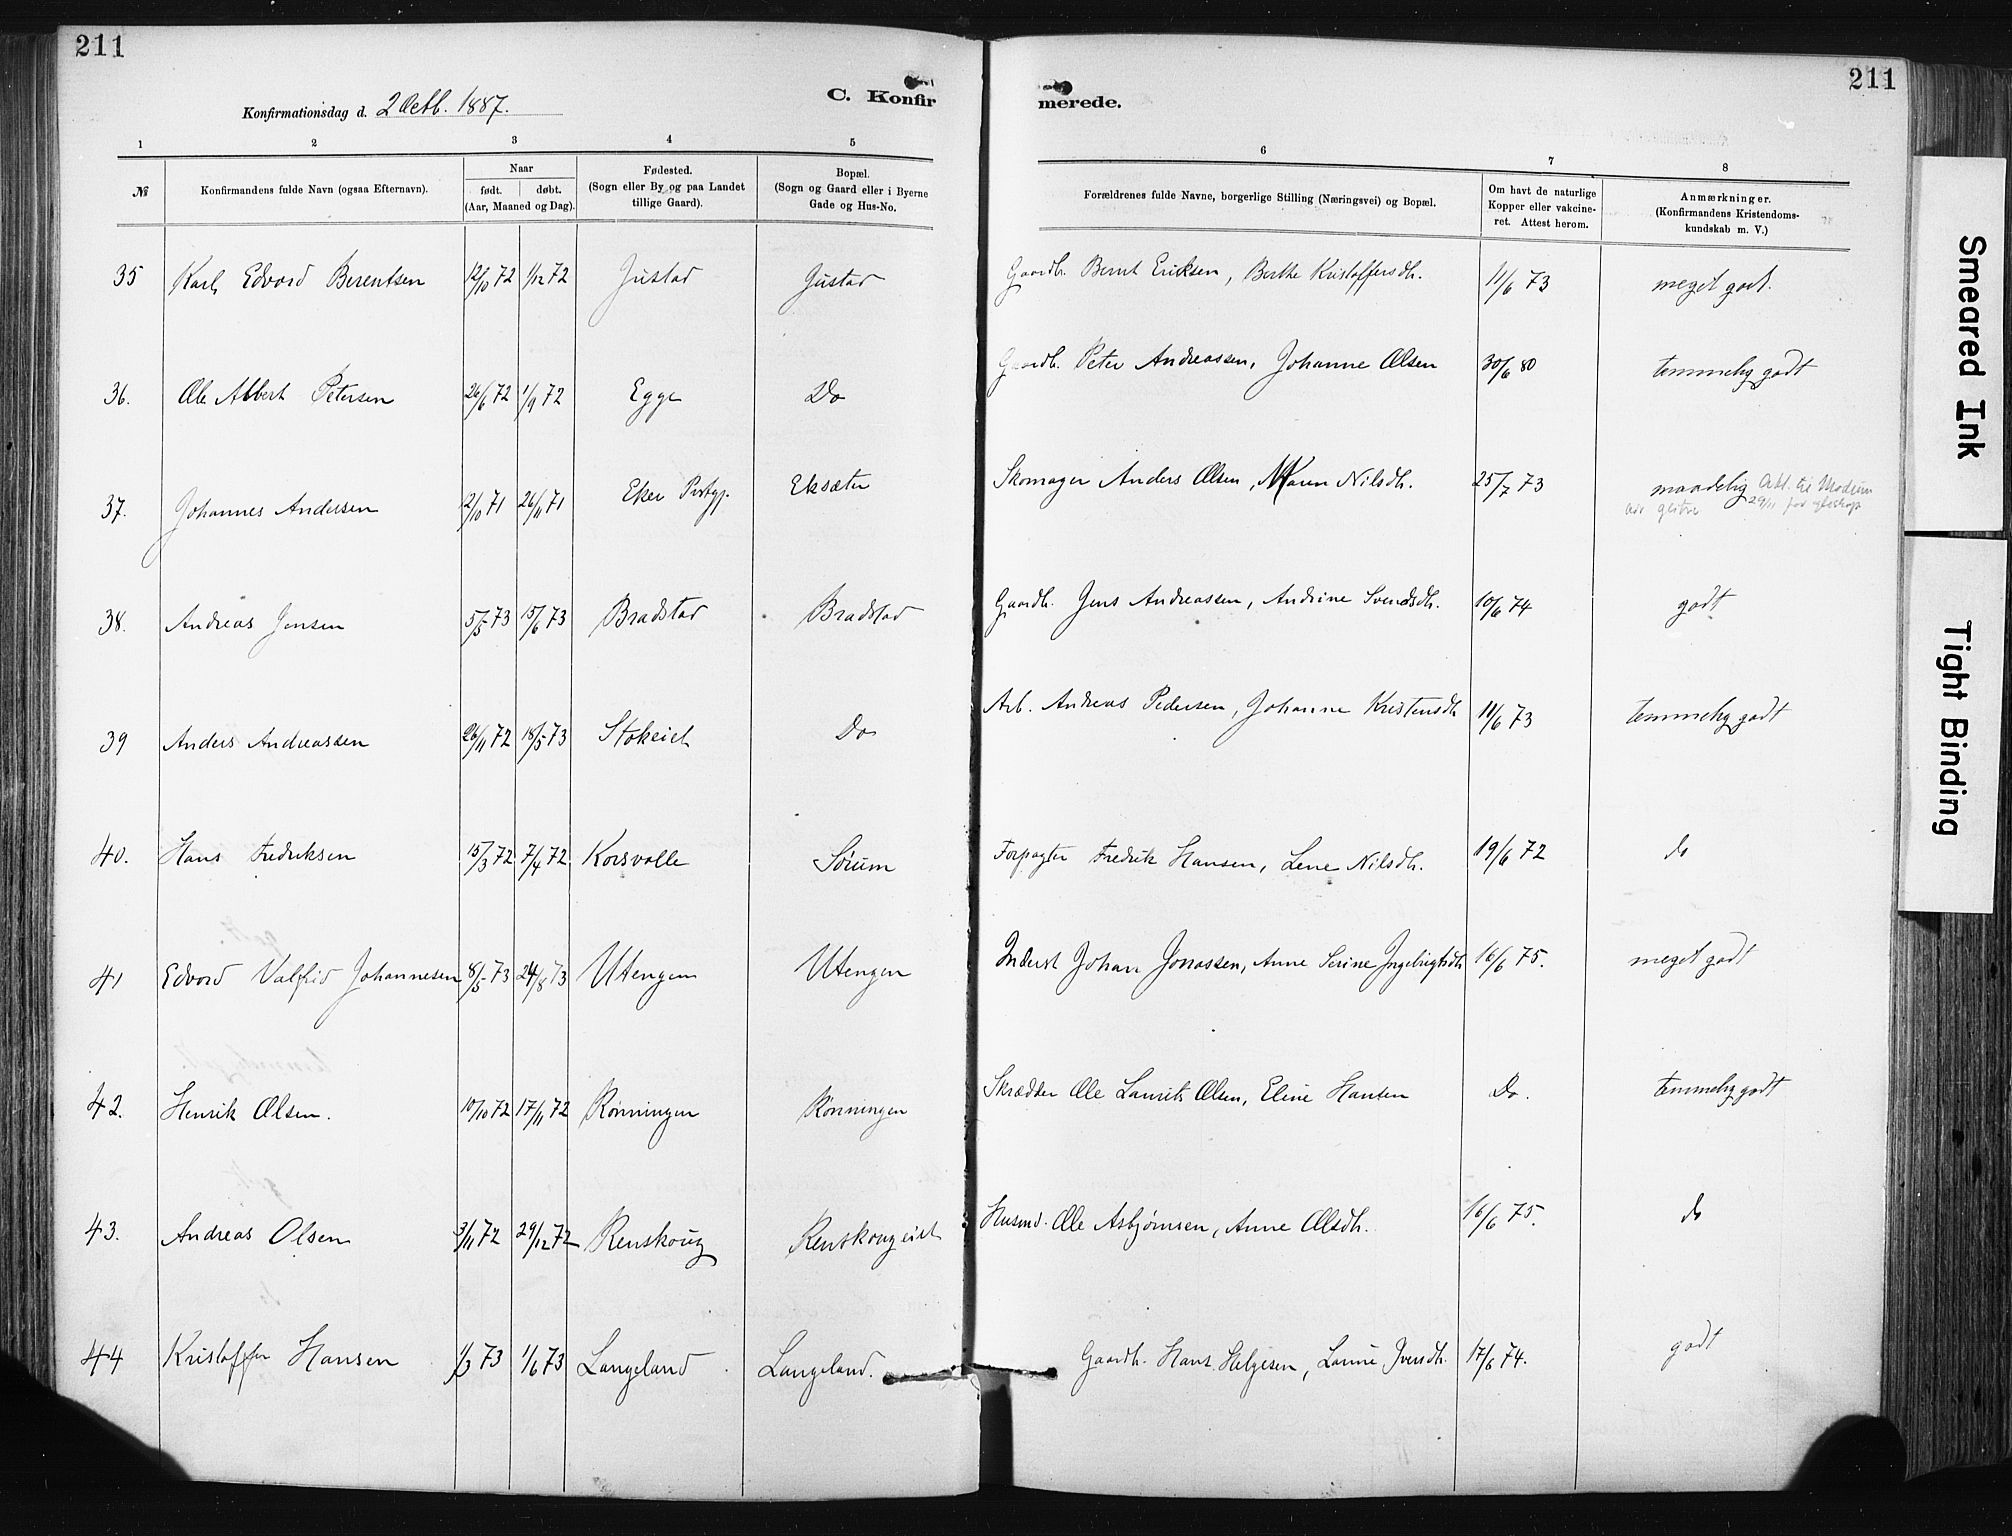 211
211
Konfirmationsdag d. 2 Octb. 1887.
C. Konfirmerede.
1 2 3 4 5 6 7 8
№
Konfirmandens fulde Navn (ogsaa Efternavn).
Naar
født. døbt.
(Aar, Maaned og Dag).
Fødested.
(Sogn eller By og paa Landet
tillige Gaard).
Bopæl.
(Sogn og Gaard eller i Byerne
Gade og Hus-No.
Forældrenes fulde Navne, borgerlige Stilling (Næringsvei) og Bopæl.
Om havt de naturlige
Kopper eller vakcine-
ret. Attest herom.
Anmærkninger.
(Konfirmandens Kristendoms-
kundskab m. V.)
35 Karl Edvard Berentsen 12/10 72 1/12 72 Gustad Gustad Gaardb. Bernt Eriksen, Berthe Kristoffersdh. 11/6 73 meget godt.
36. Ole Albert Petersen 26/6 72 1/9 72 Egge Do Gaardb. Peter Andreassen, Johanne Olsen 30/6 80 temmelig godt
37. Johannes Andersen 12/10 71 26/11 71 Eker Prstgj. Eksæter Skomager Anders Olsen, Karen Nilsdh. 25/7 73 maadelig Att. til Modum
29/11
38. Andreas Jensen 5/5 73 15/6 73 Bradstad Bradstad Gaardb. Jens Andreassen, Andrine Svendsdh. 10/6 74 godt
39 Anders Andreassen 26/11 72 18/5 73 Stokeiet Do Arb. Andreas Pedersen, Johanne Kristensdh 11/6 73 temmelig godt
40. Hans Fredriksen 15/3 72 7/4 72 Korsvolle Sörum Forpagter Fredrik Hansen, Lene Nilsdh. 19/6 72 do
41 Edvard Valfrid Johannesen 8/5 73 24/8 73 Utengen Utengen Inderst Johan Jonassen, Anne Serine Ingebrigtsdh 16/6 75. meget godt
42. Henrik Olsen. 10/10 72 17/11 72 Rønningen Rønningen Skrædder Ole Laurits Olsen, Eline Hansen Do. temmelig godt
43. Andreas Olsen 3/11 72 29/12 72 Renskoug Renskougeiet Husmd. Ole Asbjørnsen, Anne Olsdh. 16/6 75. do
44 Kristoffer Hansen 1/3 73 1/6 73 Langeland Langeland. Gaardb. Hans Helgesen, Laurie Iversdh. 17/6 74. godt
Smeared Ink
Tight Binding